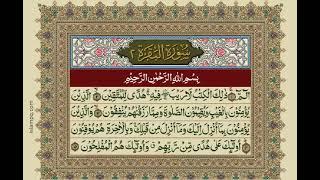 سُوْرَةُ الْبَقَرَةِ ٢
بِسْمِ اللّٰهِ الرَّحْمٰنِ الرَّحِيْمِ
الٓمّٓ ۚ ذٰلِكَ الْكِتٰبُ لَا رَيْبَ ۛ فِيْهِ ۛ هُدًى لِّلْمُتَّقِيْنَ ۙ الَّذِيْنَ
يُؤْمِنُوْنَ بِالْغَيْبِ وَيُقِيْمُوْنَ الصَّلٰوةَ وَمِمَّا رَزَقْنٰهُمْ يُنْفِقُوْنَ ۙ وَالَّذِيْنَ
يُؤْمِنُوْنَ بِمَآ اُنْزِلَ اِلَيْكَ وَمَآ اُنْزِلَ مِنْ قَبْلِكَ ۚ وَبِالْاٰخِرَةِ هُمْ يُوْقِنُوْنَ
اُولٰٓئِكَ عَلٰى هُدًى مِّنْ رَّبِّهِمْ ۗ وَاُولٰٓئِكَ هُمُ الْمُفْلِحُوْنَ